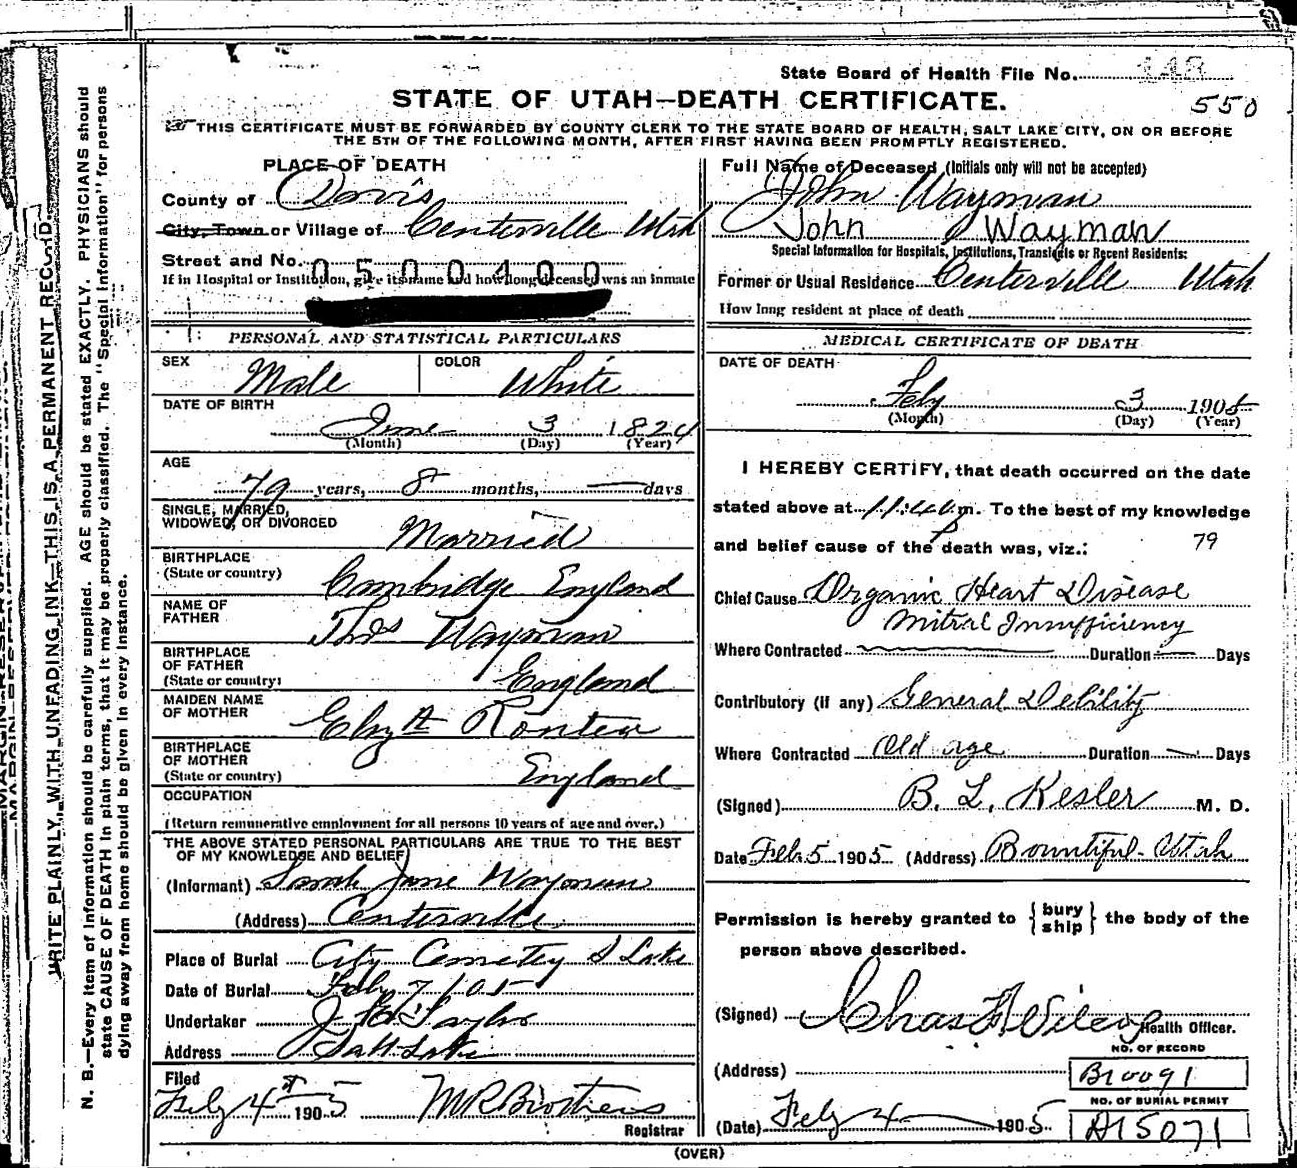 State Board of Health File No. 118
550
STATE OF UTAH—DEATH CERTIFICATE.
THIS CERTIFICATE MUST BE FORWARDED BY COUNTY CLERK TO THE STATE BOARD OF HEALTH, SALT LAKE CITY, ON OR BEFORE
THE 5TH OF THE FOLLOWING MONTH, AFTER FIRST HAVING BEEN PROMPTLY REGISTERED.
PLACE OF DEATH
County of Davis
City, Town or Village of Centerville Utah
Street and No. 0500400
If in Hospital or Institution, give its name and how long deceased was an inmate
Full Name of Deceased (Initials only will not be accepted)
John Wayman
John Wayman
Special Information for Hospitals, Institutions, Transients or Recent Residents:
Former or Usual Residence Centerville Utah
How long resident at place of death
PERSONAL AND STATISTICAL PARTICULARS
SEX Male COLOR White
DATE OF BIRTH
June 3 1824
(Month) (Day) (Year)
AGE
79 years, 8 months, — days
SINGLE, MARRIED,
WIDOWED, OR DIVORCED Married
BIRTHPLACE
(State or country) Cambridge England
NAME OF
FATHER Thos Wayman
BIRTHPLACE
OF FATHER
(State or country) England
MAIDEN NAME
OF MOTHER
BIRTHPLACE
OF MOTHER
(State or country) England
OCCUPATION
(Return remunerative employment for all persons 10 years of age and over.)
THE ABOVE STATED PERSONAL PARTICULARS ARE TRUE TO THE BEST
OF MY KNOWLEDGE AND BELIEF
(Informant) Sarah Jane Wayman
(Address) Centerville
Place of Burial City Cemetey S Lake
Date of Burial Feby 7/05
Undertaker Taylor
Address Salt Lake
Filed
Feby 4 1905
Registrar
MEDICAL CERTIFICATE OF DEATH
DATE OF DEATH
Feby 3 1905
(Month) (Day) (Year)
I HEREBY CERTIFY, that death occurred on the date
stated above at m. To the best of my knowledge
and belief cause of the death was, viz.: 79
Chief Cause Organic Heart Disease
Mitral Insufficiency
Where Contracted Duration — Days
Contributory (if any) General Debility
Where Contracted Old age Duration — Days
(Signed) B. L. Kesler M. D.
Date Feb 5 1905 (Address) Bountiful Utah
Permission is hereby granted to {bury
ship} the body of the
person above described.
(Signed) Chas Wilcox Health Officer.
(Address)
NO. OF RECORD
B10091
NO. OF BURIAL PERMIT
A15071
(Date) Feby 4 1905
(OVER)
WRITE PLAINLY, WITH UNFADING INK—THIS IS A PERMANENT RECORD
N. B.—Every item of information should be carefully supplied. AGE should be stated EXACTLY. PHYSICIANS should
state CAUSE OF DEATH in plain terms, that it may be properly classified. The "Special Information" for persons
dying away from home should be given in every instance.